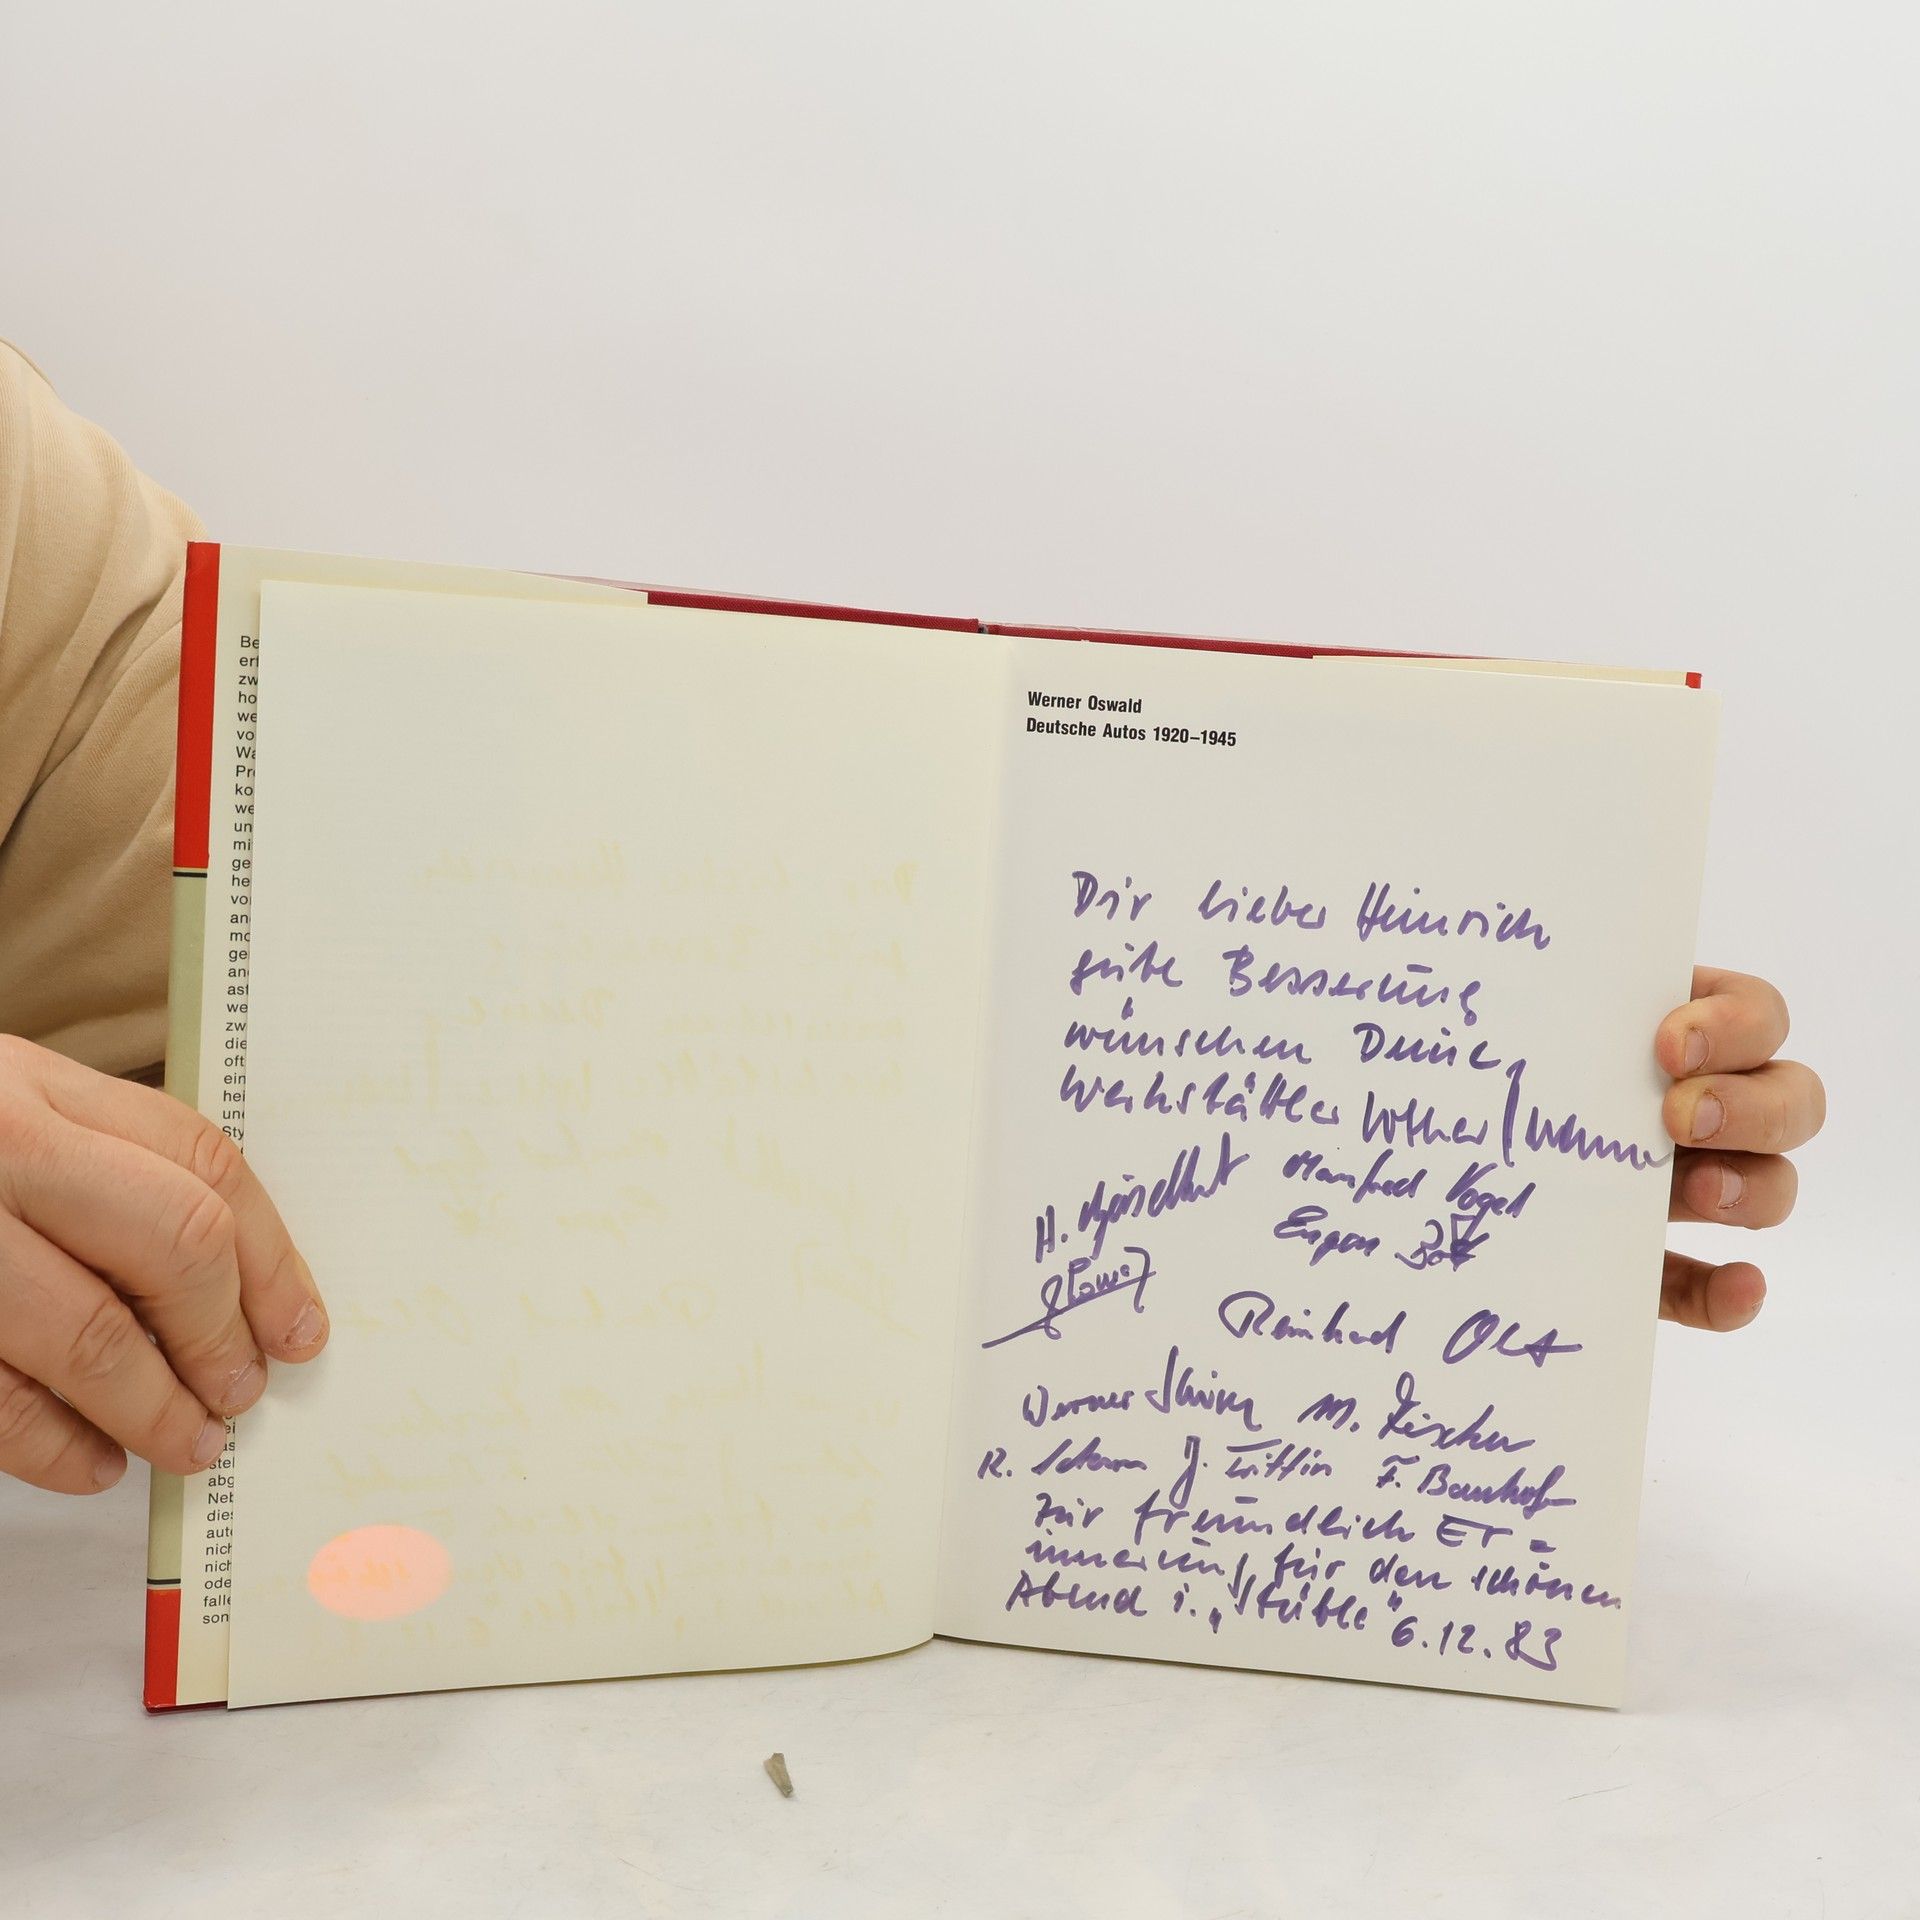 Be
erf
zw
ho
we
vo
Wa
Pro
ko
we
un
mi
ge
he
vo
an
mo
ge
an
ast
we
zw
die
oft
ein
hei
und
Sty
ei
as
stel
abg
Neb
dies
auto
nich
nich
ode
falle
son
Werner Oswald
Deutsche Autos 1920–1945
Dir lieber Heinrich
gute Besserung
wünschen Deine
Werkstättler Lother
H. Manfred Vogel
Eugen
Reinhard Olt
Werner M. Fischer
R. J. Trittin F. Bauhof
Zur freundlich Er=
innerung für den schönen
Abend i. „Stüble" 6.12.83